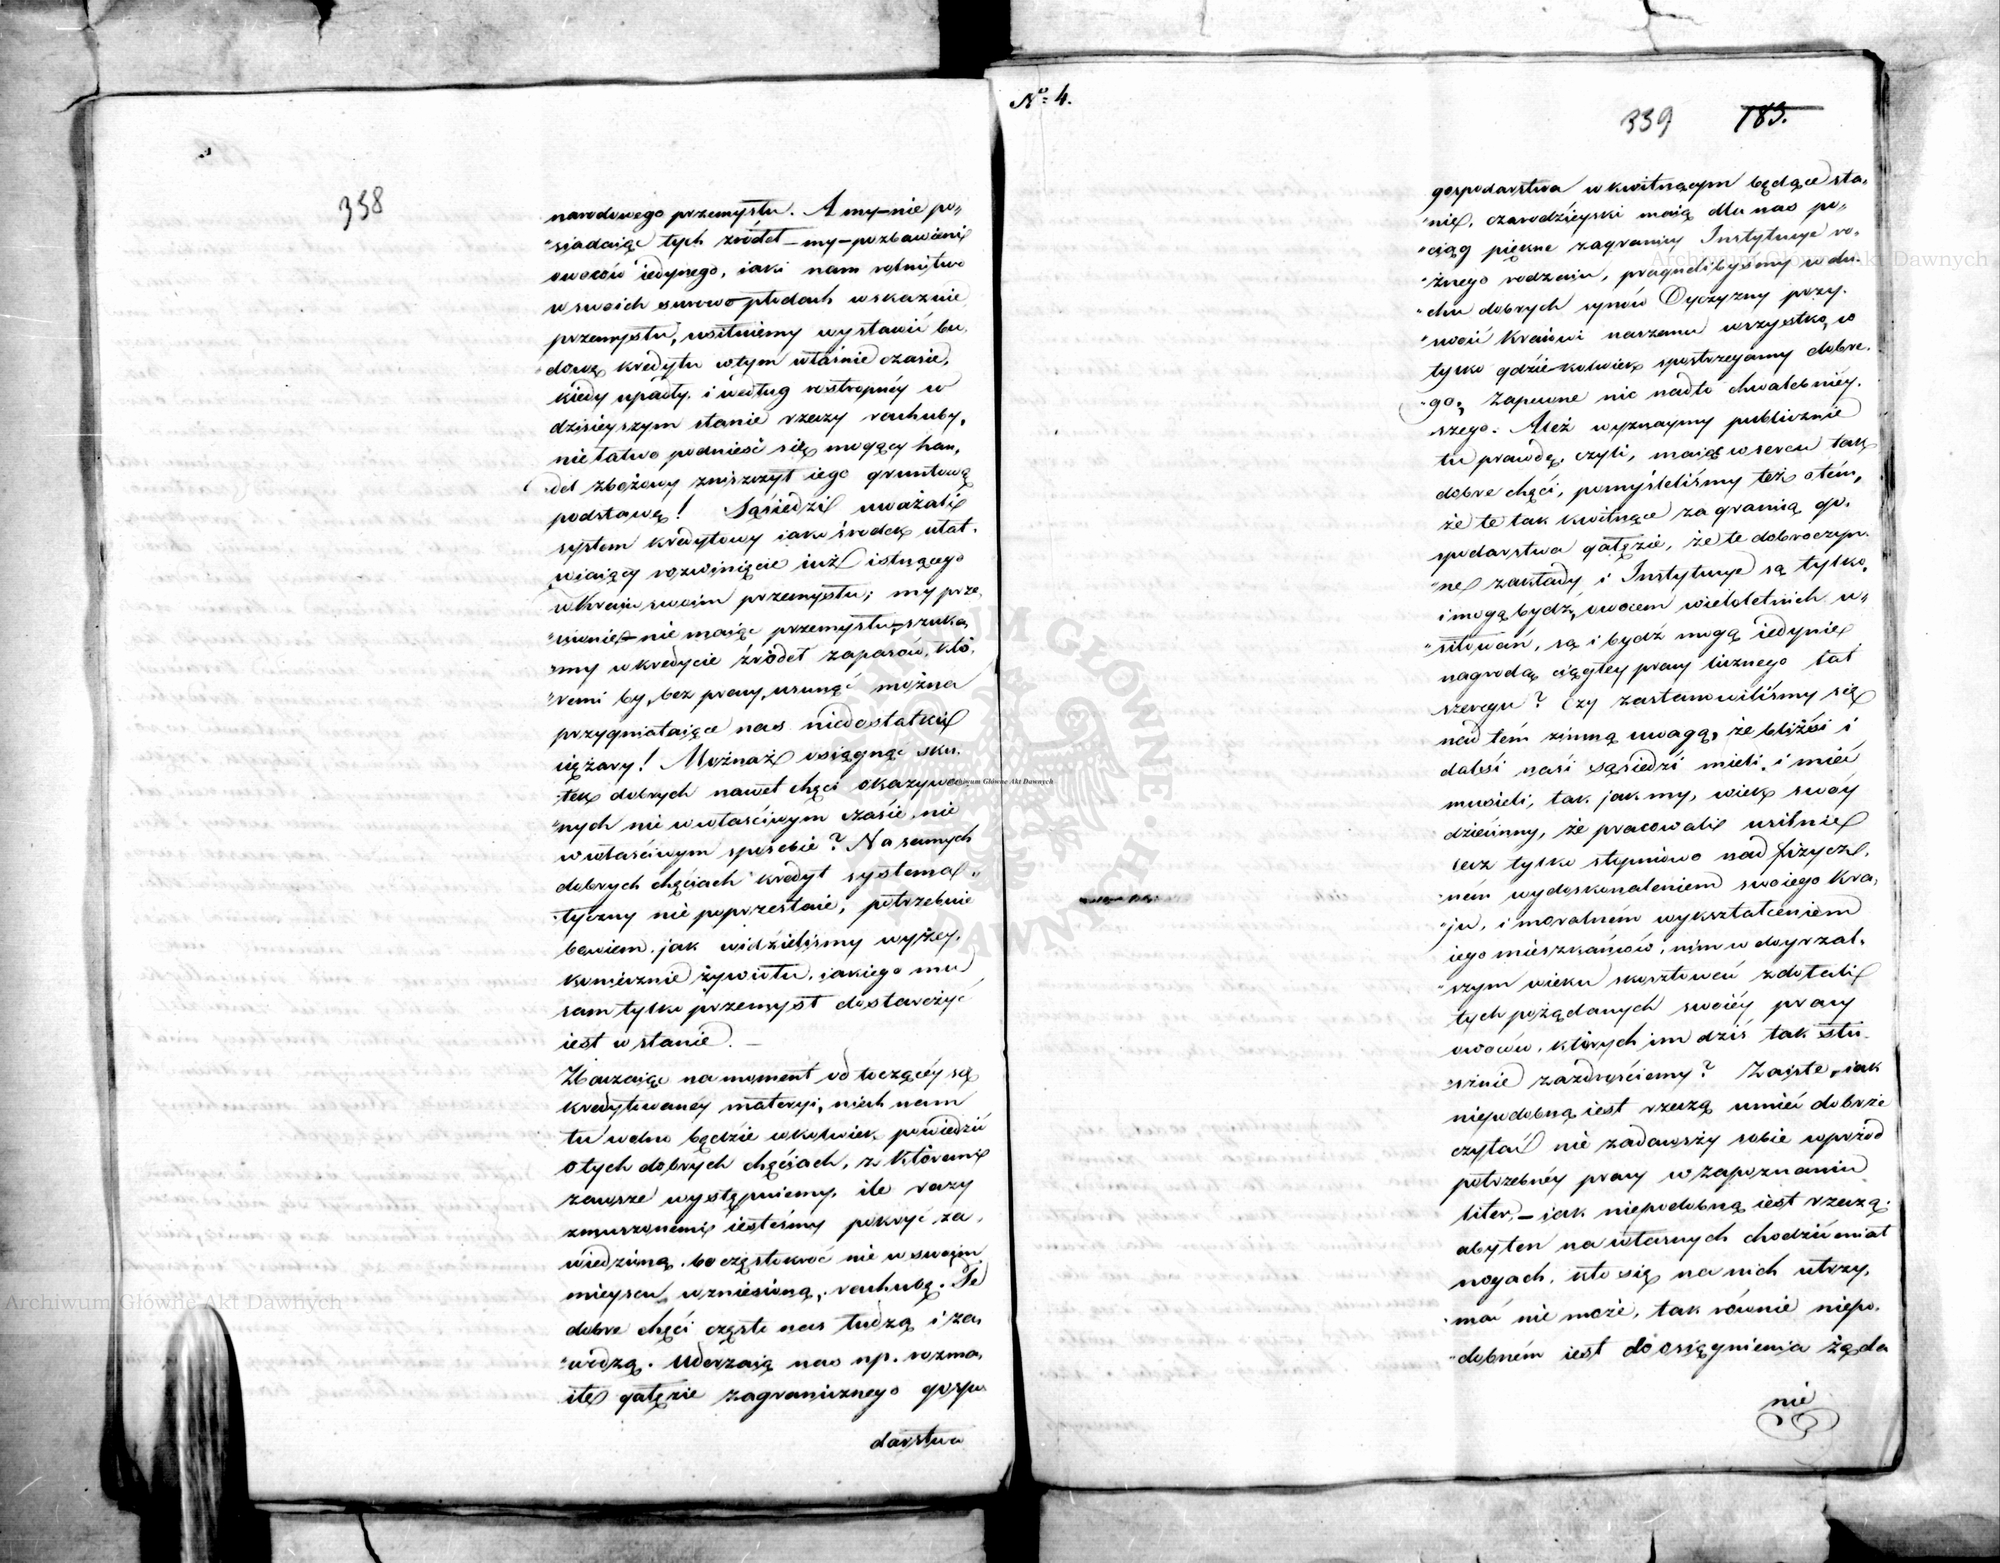 358
narodowego przemysłu. A my—nie po„
„siadaiąc tych źródeł—my—pozbawieni
owoców iedynego, iaki nam rolnictwo
w swoich surowo płodach wskaźnie
przemysłu, usiłuiemy wystawić bu„
„dowę kredytu w tym właśnie czasie,
kiedy upadły, i według rostropnéy w
dzisieyszym stanie rzeczy rachuby,
nie łatwo podnieść się mogący han„
„del zbożowy zniszczył iego gruntową
podstawę! Sąsiedzi uważali
system kredytowy iako środek ułat„
wiaiący rozwinięcie iuż istnącego
w kraiu swoim przemysłu; my prze„
„ciwnie—nie maiąc przemysłu—szuka„
„my w kredycie źródeł zapasów, któ„
„remi by, bez pracy, usunąć można
przygniataiące nas niedostatki
ciężary! Możnaż osiągnąć sku„
„tek dobrych nawet chęci okazywa„
„nych nie w właściwym czasie, nie
w właściwym sposobie? Na samych
dobrych chęciach kredyt systema„
„tyczny nie poprzestaie; potrzebuie
bowiem, jak widzieliśmy wyżey,
koniecznie żywiołu, iakiego mu
sam tylko przemysł dostarczyć
iest w stanie. —
Zbaczaiąc na moment od toczącéy się
kredytowanéy materyi, niech nam
tu wolno będzie cokolwiek powiedzieć
o tych dobrych chęciach, z któremi
zawsze występuiemy, ile razy
zmuszonemi iesteśmy pokryć za„
wiedzioną, bo częstokroć nie w swoim
mieyscu wzniesioną, rachubę. Te
dobre chęci często nas łudzą i za„
„wodzą. Uderzaią nas np. rozma„
ite gałęzie zagranicznego gospo„
darstwa
No. 4.
339 183.
gospodarstwa w kwitnącym będące sta„
„nie, czarodzieyski maią dla nas po„
„ciąg piękne zagranicy Instytucye ro„
„żnego rodzaiu, pragnelibyśmy w du„
„chu dobrych synów Oyczyzny przy„
„swoić kraiowi naszemu wszystko, co
tylko gdzie-kolwiek spostrzegamy dobre„
„go. Zapewne nic nadto chwalebniey„
szego. Ależ wyznaymy publicznie
tu prawdę, czyli, maiąc w sercu tak
dobre chęci, pomyśleliśmy też o tém,
że te tak kwitnące za granicą go„
spodarstwa gałęzie, że te dobroczyn„
„ne zakłady i Instytucye są tylko,
i mogą bydź, owocem wieloletnich u„
„siłowań, są i bydź mogą iedynie
nagrodą ciągłey pracy licznego lat
szeregu? Czy zastanowiliśmy się
nad tém zimną uwagą, że bliżsi i
dalsi nasi sąsiedzi mieli, i mieć
musieli, tak jak my, wiek swóy
dziecinny, że pracowali usilnie
lecz tylko stopniowo nad fizycz„
„ném wydoskonaleniem swoiego kra„
„ju, i moralném wykształceniem
iego mieszkańców, nim w doyrzal„
„szym wieku skosztować zdołali
tych pożądanych swoiéy pracy
owoców, których im dziś tak słu„
„sznie zazdrościemy? Zaiste, iak
niepodobną iest rzeczą umieć dobrze
czytać nie zadawszy sobie wprzód
potrzebnéy pracy w zapoznaniu
liter,—iak niepodobną iest rzeczą,
aby ten na własnych chodzić miał
nogach, kto się na nich utrzy„
„mać nie może, tak równie niepo„
„dobném iest do osiągnienia żąda
nie